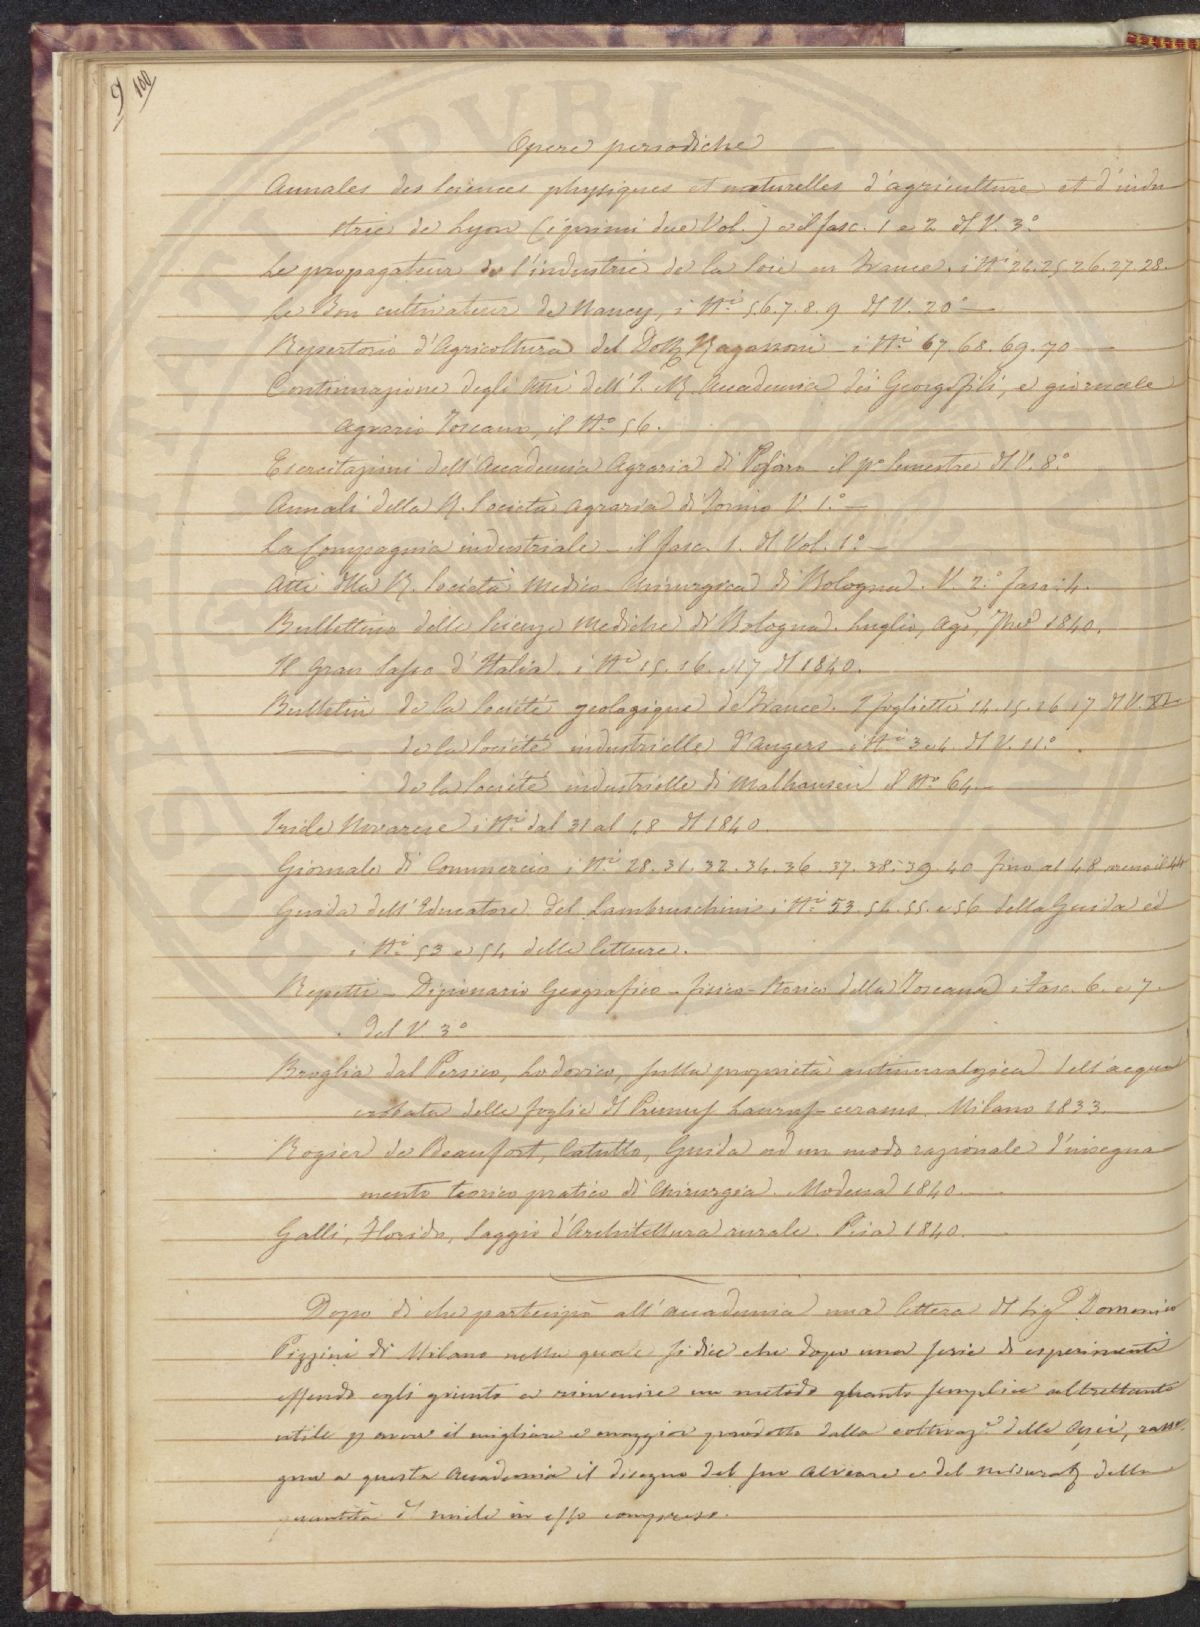 9 100
Opere periodiche
Annales des sciences physiques et naturelles d'agriculture et d'indu
strie de Lyon (i primi due Vol.) e il fasc. 1 e 2 del V. 3.º
Le propagateur de l'industrie de la Soie en France. i N.i 24. 25 26. 27. 28.
Le Bon cultivateur de Nancy, i N.i 5. 6. 7. 8. 9 del V. 20º
Repertorio d'Agricoltura del Dott. Ragazzoni i N.i 67. 68. 69. 70
Continuazione degli Atti dell'I. e R. Accademia dei Georgofili, e giornale
Agrario Toscano, il N.º 56.
Esercitazioni dell'Accademia Agraria di Pesaro il pº Semestre del V. 8.º
Annali della R. Società Agraria di Torino V. 1.º
La Compagnia industriale il fasc. 1. del Vol. 1º
Atti della R. Società Medico-Chirurgica di Bologna. V. 2.º fasc. 4.
Bullettino delle Scienze Mediche di Bologna. Luglio, Agº, 7bre 1840.
Il Gran Sasso d'Italia i N.i 15. 16. e 17 del 1840.
Bulletin de la Société geologique de France. I foglietti 14. 15. 16 17 del V. XI
de la Société industrielle d'Angers i N.i 3 e 4. del V. 11.º
de la Société industrielle di Malhausen il Nº 64.
Iride Novarese i N.i dal 31 al 48 del 1840
Giornale di Commercio i N.i 28. 31. 32. 34. 36. 37. 38. 39. 40 fino al 48 meno il 44
Guida dell'Educatore del Lambruschini i N.i 53 54. 55. e 56 della Guida ed
i N.i 53 e 54 delle letture.
Repetti - Dizionario Geografico-fisico-Storico della Toscana i Fasc. 6. e 7.
del V. 3º
Broglia dal Persico, Lodovico, sulla proprietà antinevralgica dell'acqua
coobata delle foglie di Prunus Laurus-cerasus. Milano 1833.
Rogier de Beaufort, Catullo, Guida ad un modo razionale d'insegna
mento teorico pratico di Chirurgia. Modena 1840.
Galli, Florido, Saggio d'Architettura rurale. Pisa 1840.
Dopo di che partecipò all'accademia una lettera del Sig.r Domenico
Pizzini di Milano nella quale si dice che dopo una serie di esperimenti
essendo egli giunto a rinvenire un metodo quanto semplice altrettanto
utile p avere il migliore e maggior prodotto dalla coltivaz.e delle Api, rasse
gna a questa Accademia il disegno del suo Alveare e del misurat. della
quantità di miele in esso compreso.